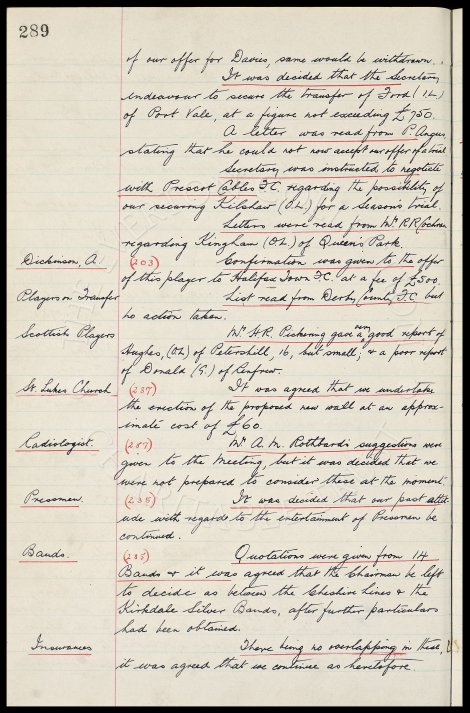 289
of our offer for Davies, same would be withdrawn.
It was decided that the Secretary
endeavour to secure the transfer of Ford (I.L.)
of Port Vale, at a figure not exceeding £750.
A letter was read from P. Angus
stating that he could not now accept our offer of a trial
Secretary was instructed to negotiate
with Prescot Cables F.C. regarding the possibility of
our securing Kilshaw (O.L.) for a Season's trial.
Letters were read from Mr. R.R. Cochran
regarding Kingham (O.L.) of Queen's Park.
Dickinson, A. (203) Confirmation was given to the offer
of this player to Halifax Town F.C. at a fee of £500.
Players on Transfer List read from Derby County F.C. but
no action taken.
Scottish Players Mr. H.R. Pickering gave a very good report of
Hughes, (O.L.) of Petershill, 16, but small; & a poor report
of Donald (G.) of Renfrew.
St. Lukes Church (287) It was agreed that we undertake
the erection of the proposed new wall at an approx-
imate cost of £60.
Radiologist. (287) Mr. A. M. Rothbard's suggestions were
given to the Meeting, but it was decided that we
were not prepared to consider these at the moment.
Pressmen. (285) It was decided that our past attit-
ude with regard to the entertainment of Pressmen be
continued.
Bands. (283) Quotations were given from 14
Bands & it was agreed that the Chairman be left
to decide as between the Cheshire Lines & the
Kirkdale Silver Bands, after further particulars
had been obtained.
Insurances There being no overlapping in these,
it was agreed that we continue as heretofore.